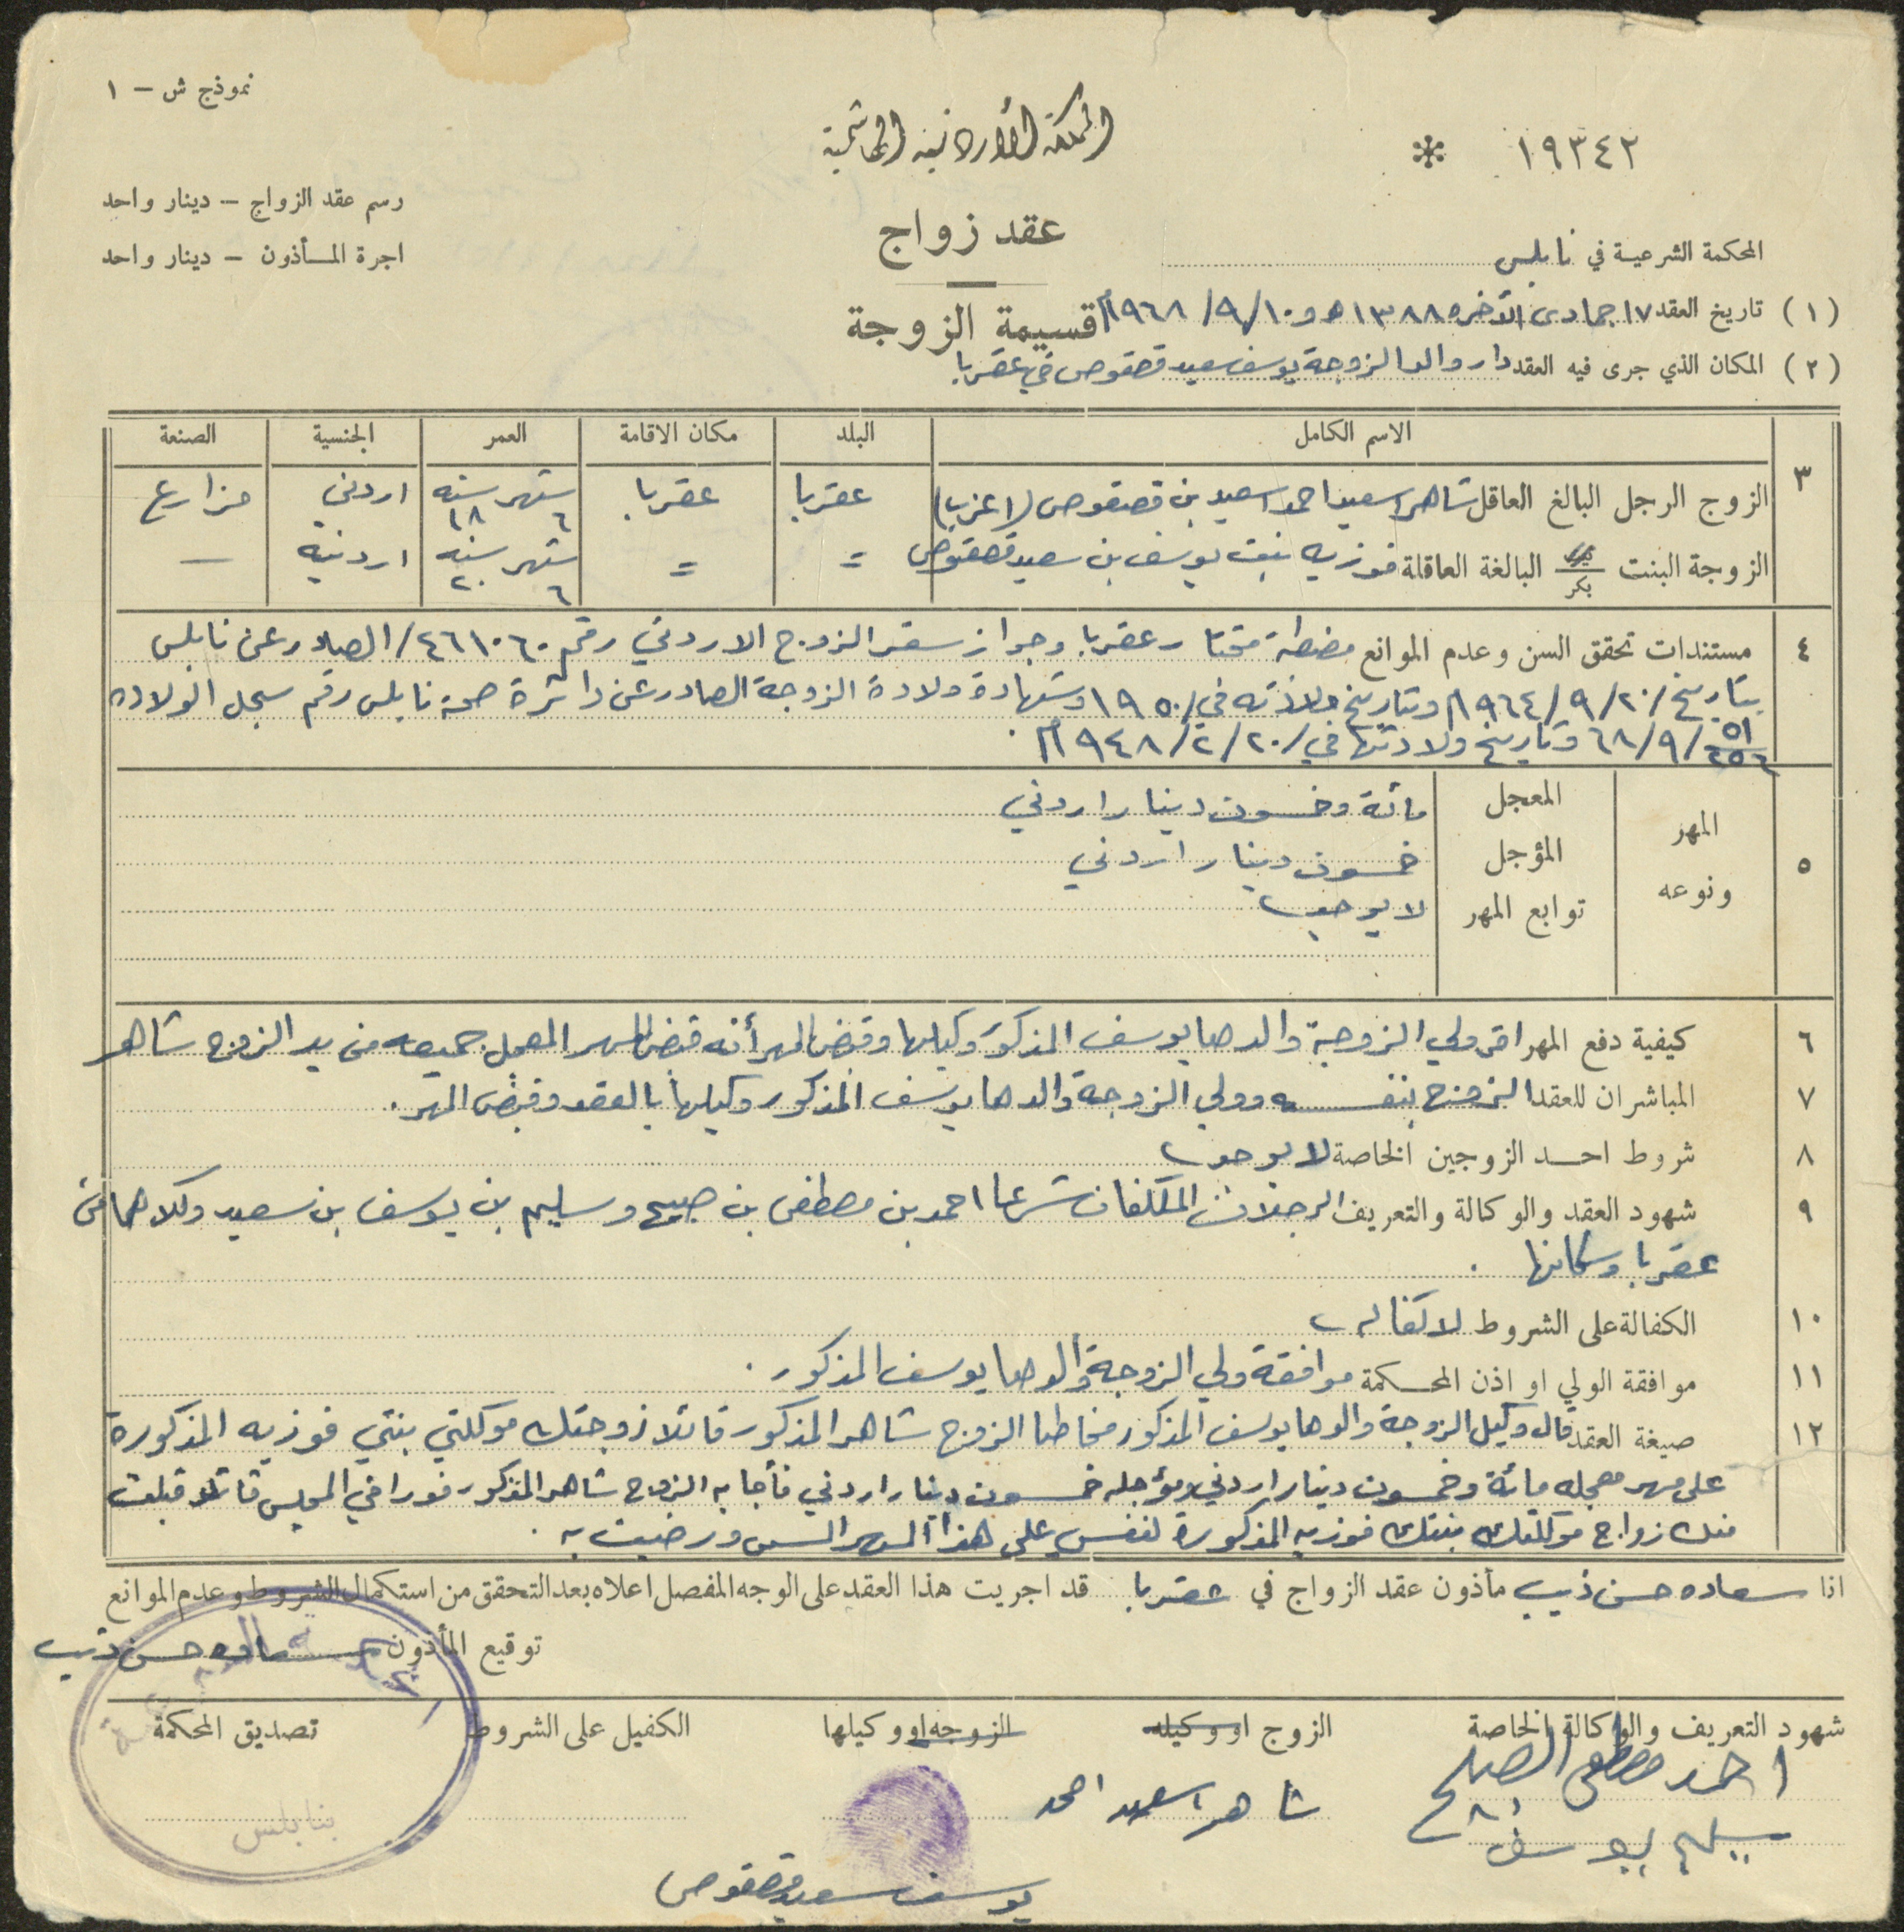 نموذج ش - ١
١٩٣٤٢ *
المملكة الأردنية الهاشمية
رسم عقد الزواج - دينار واحد
عقد زواج
اجرة المأذون - دينار واحد
المحكمة الشرعية في نابلس
(١) تاريخ العقد ١٧ جمادى الآخرة ١٣٨٨ هـ و ١٠/٩/١٩٦٨م
قسيمة الزوجة
(٢) المكان الذي جرى فيه العقد دار والد الزوجة يوسف سعيد قصقوص في عقربا
٣ الاسم الكامل البلد مكان الاقامة العمر الجنسية الصنعة
الزوج الرجل البالغ العاقل شاهر اسعيد احمد اسعيد بن قصقوص (اعزب) عقربا عقربا شهر ٦ سنه ١٨ اردني مزارع
الزوجة البنت بكر البالغة العاقلة فوزيه بنت يوسف بن سعيد قصقوص = = شهر ٦ سنه ٢٠ اردنيه —
٤ مستندات تحقق السن وعدم الموانع مضبطة مختار عقربا وجواز سفر الزوج الاردني رقم ٤٦١٠٦٠/ الصادر عن نابلس
بتاريخ ٢٠/٩/١٩٦٤م وتاريخ ولادته في/١٩٥٠ وشهادة ولادة الزوجة الصادر عن دائرة صحة نابلس رقم سجل الولاده
٦٨/٩/ وتاريخ ولادتها في/٢٠/٢/١٩٤٨م.
٥ المهر ونوعه
المعجل مائة وخمسون دينار اردني
المؤجل خمسون دينار اردني
توابع المهر لا يوجد
٦ كيفية دفع المهر اقر ولي الزوجة والدها يوسف المذكور وكيلها وقبض المهر أنه قبض المهر المعجل جميعه من يد الزوج شاهر
٧ المباشران للعقد الزوج بنفسه وولي الزوجة والدها يوسف المذكور وكيلها بالعقد وقبض المهر.
٨ شروط احد الزوجين الخاصة لا يوجد
٩ شهود العقد والوكالة والتعريف الرجلان المكلفان شرعا احمد بن مصطفى بن صبيح وسليم بن يوسف بن سعيد وكلاهما من
عقربا وسكانها.
١٠ الكفالة على الشروط لا كفاله
١١ موافقة الولي او اذن المحكمة موافقة ولي الزوجة والدها يوسف المذكور.
١٢ صيغة العقد قال وكيل الزوجة والدها يوسف المذكور مخاطبا الزوج شاهر المذكور قائلا زوجتك موكلتي بنتي فوزيه المذكورة
على مهر معجله مائة وخمسون دينار اردني ومؤجله خمسون دينار اردني فأجابه الزوج شاهر المذكور فورا في المجلس قائلا قبلت
منك زواج موكلتك بنتك فوزيه المذكورة لنفسي على هذا المهر المسمى ورضيت به.
انا سعاده حسن ذيب مأذون عقد الزواج في عقربا قد اجريت هذا العقد على الوجه المفصل اعلاه بعد التحقق من استكمال الشروط وعدم الموانع
توقيع المأذون سعاده حسن ذيب
شهود التعريف والوكالة الخاصة الزوج او وكيله الزوجه او وكيلها الكفيل على الشروط تصديق المحكمة
احمد مصطفى
شاهر اسعيد احمد
سليم يوسف
بنابلس
يوسف سعيد قصقوص